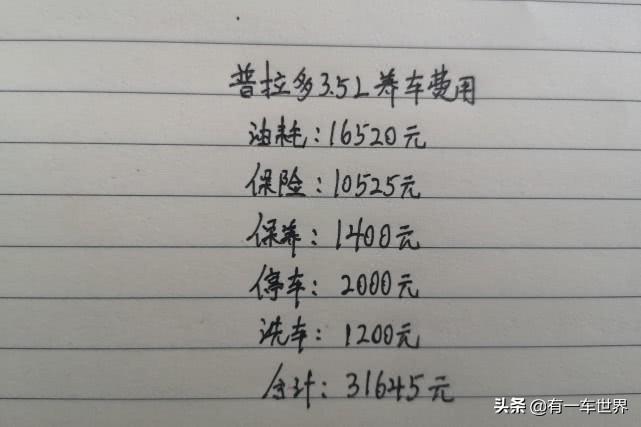 普拉多3.5L养车费用
油耗:16520元
保险:10525元
保养:1400元
停车:2000元
洗车:1200元
合计:31645元
头条 @有一车世界